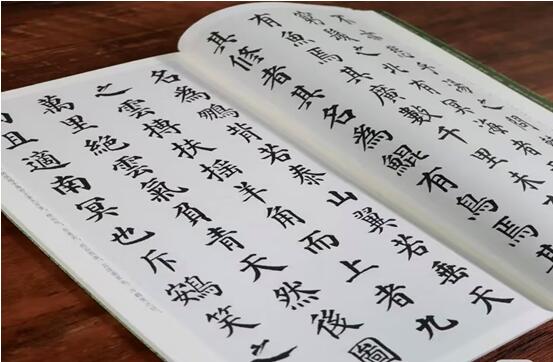 不 湯之問
窮髮之北有冥海者
有魚焉其廣數千里未有
其修者其名為鯤有鳥焉其
名為鵬背若泰山翼若垂天
之雲摶扶搖羊角而上者九
萬里絕雲氣負青天然後圖
且適南冥也斥鴳笑之